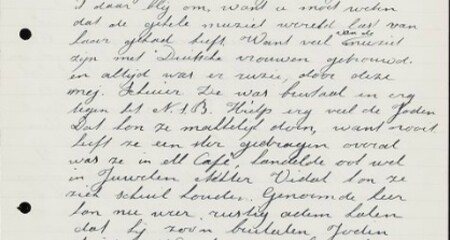 daar blij om, want u moet weten
dat de gehele muziek wereld last van
haar gehad heeft. Want veel van de muziek
zijn met Duitsche vrouwen getrouwd.
en altijd was er ruzie, door deze
mej. Scheier. Die was brutaal en erg
tegen de N.S.B. Hielp erg veel de Joden
Dat kon ze makkelijk doen, want nooit
heeft ze een ster gedragen overal
was ze in elk Café, handelde ook wel
in Juwelen Vidal kon ze
zich schuil houden. Genoemde heer
kon nu weer rustig adem halen
dat hij zoo'n brutalen Joden